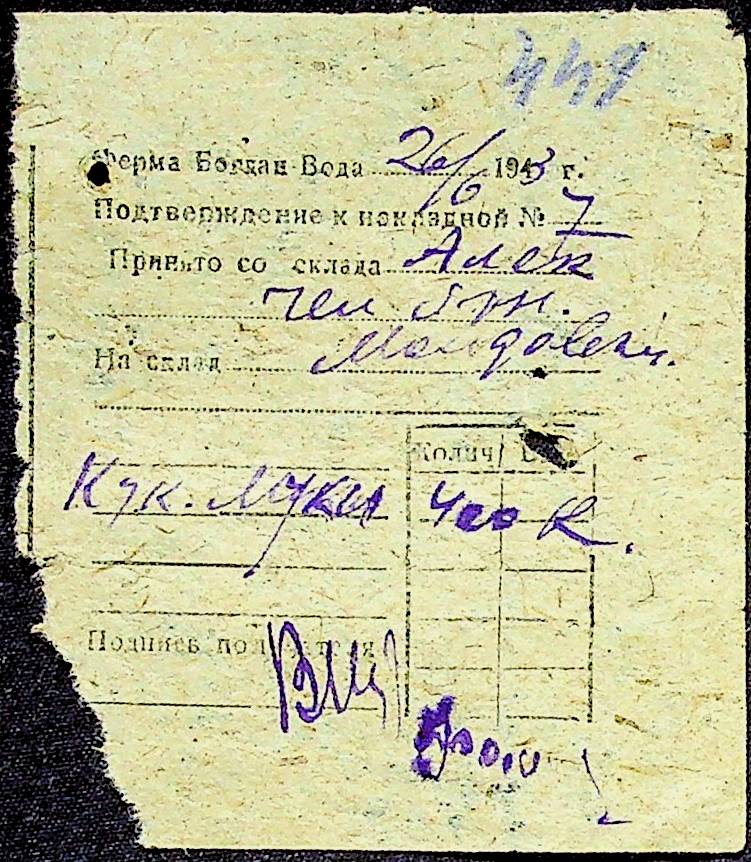 449
Ферма Богдан Вода 26/6 1943 г.
Подтверждение к накладной № 7
Принято со склада Алек
чел
На склад
Колич
Кук. муки 400 к.
Подпись получателя